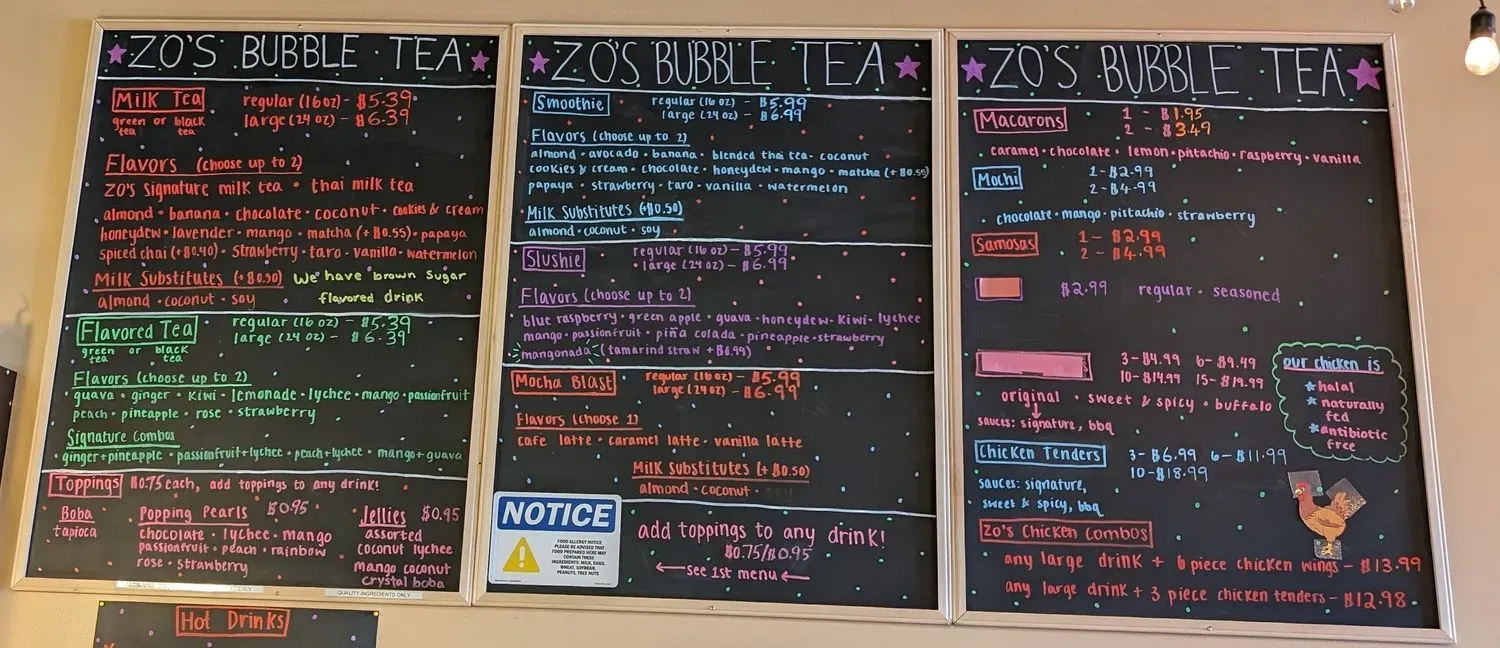 ZO'S BUBBLE TEA
Milk Tea
green or black
tea tea
regular (16oz) - $5.39
large (24 oz) - $6.39
Flavors (choose up to 2)
ZO's signature milk tea • thai milk tea
almond • banana • chocolate • coconut • cookies & cream
honeydew • lavender • mango • matcha (+$0.55) • papaya
spiced chai (+$0.40) • strawberry • taro • vanilla • watermelon
Milk Substitutes (+$0.50)
almond • coconut • soy
We have brown sugar
flavored drink
Flavored Tea
green or black
tea tea
regular (16 oz) - $5.39
large (24 oz) - $6.39
Flavors (choose up to 2)
guava • ginger • kiwi • lemonade • lychee • mango • passionfruit
peach • pineapple • rose • strawberry
Signature Combos
ginger+pineapple • passionfruit+lychee • peach+lychee • mango+guava
Toppings $0.75 each, add toppings to any drink!
Boba
tapioca
Popping Pearls $0.95
chocolate • lychee • mango
passionfruit • peach • rainbow
rose • strawberry
Jellies $0.95
assorted
coconut lychee
mango coconut
crystal boba
QUALITY INGREDIENTS ONLY
Hot Drinks
ZO'S BUBBLE TEA
Smoothie
regular (16 oz) - $5.99
large (24 oz) - $6.99
Flavors (choose up to 2)
almond • avocado • banana • blended thai tea • coconut
cookies & cream • chocolate • honeydew • mango • matcha (+$0.55)
papaya • strawberry • taro • vanilla • watermelon
Milk Substitutes (+$0.50)
almond • coconut • soy
Slushie
regular (16 oz) - $5.99
large (24 oz) - $6.99
Flavors (choose up to 2)
blue raspberry • green apple • guava • honeydew • kiwi • lychee
mango • passionfruit • piña colada • pineapple • strawberry
mangonada (tamarind straw +$0.99)
Mocha Blast
regular (16 oz) - $5.99
large (24 oz) - $6.99
Flavors (choose 1)
cafe latte • caramel latte • vanilla latte
Milk Substitutes (+$0.50)
almond • coconut • soy
NOTICE
FOOD ALLERGY NOTICE
PLEASE BE ADVISED THAT
FOOD PREPARED HERE MAY
CONTAIN THESE
INGREDIENTS: MILK, EGGS,
WHEAT, SOYBEAN,
PEANUTS, TREE NUTS
add toppings to any drink!
$0.75/$0.95
see 1st menu
ZO'S BUBBLE TEA
Macarons
1 - $1.95
2 - $3.49
caramel • chocolate • lemon • pistachio • raspberry • vanilla
Mochi
1 - $2.99
2 - $4.99
chocolate • mango • pistachio • strawberry
Samosas
1 - $2.99
2 - $4.99
$2.99 regular • seasoned
3 - $4.99 6 - $9.49
10 - $14.99 15 - $19.99
original • sweet & spicy • buffalo
sauces: signature, bbq
our chicken is
halal
naturally
fed
antibiotic
free
Chicken Tenders
3 - $6.99 6 - $11.99
10 - $18.99
sauces: signature,
sweet & spicy, bbq
Zo's Chicken Combos
any large drink + 6 piece chicken wings - $13.99
any large drink + 3 piece chicken tenders - $12.98